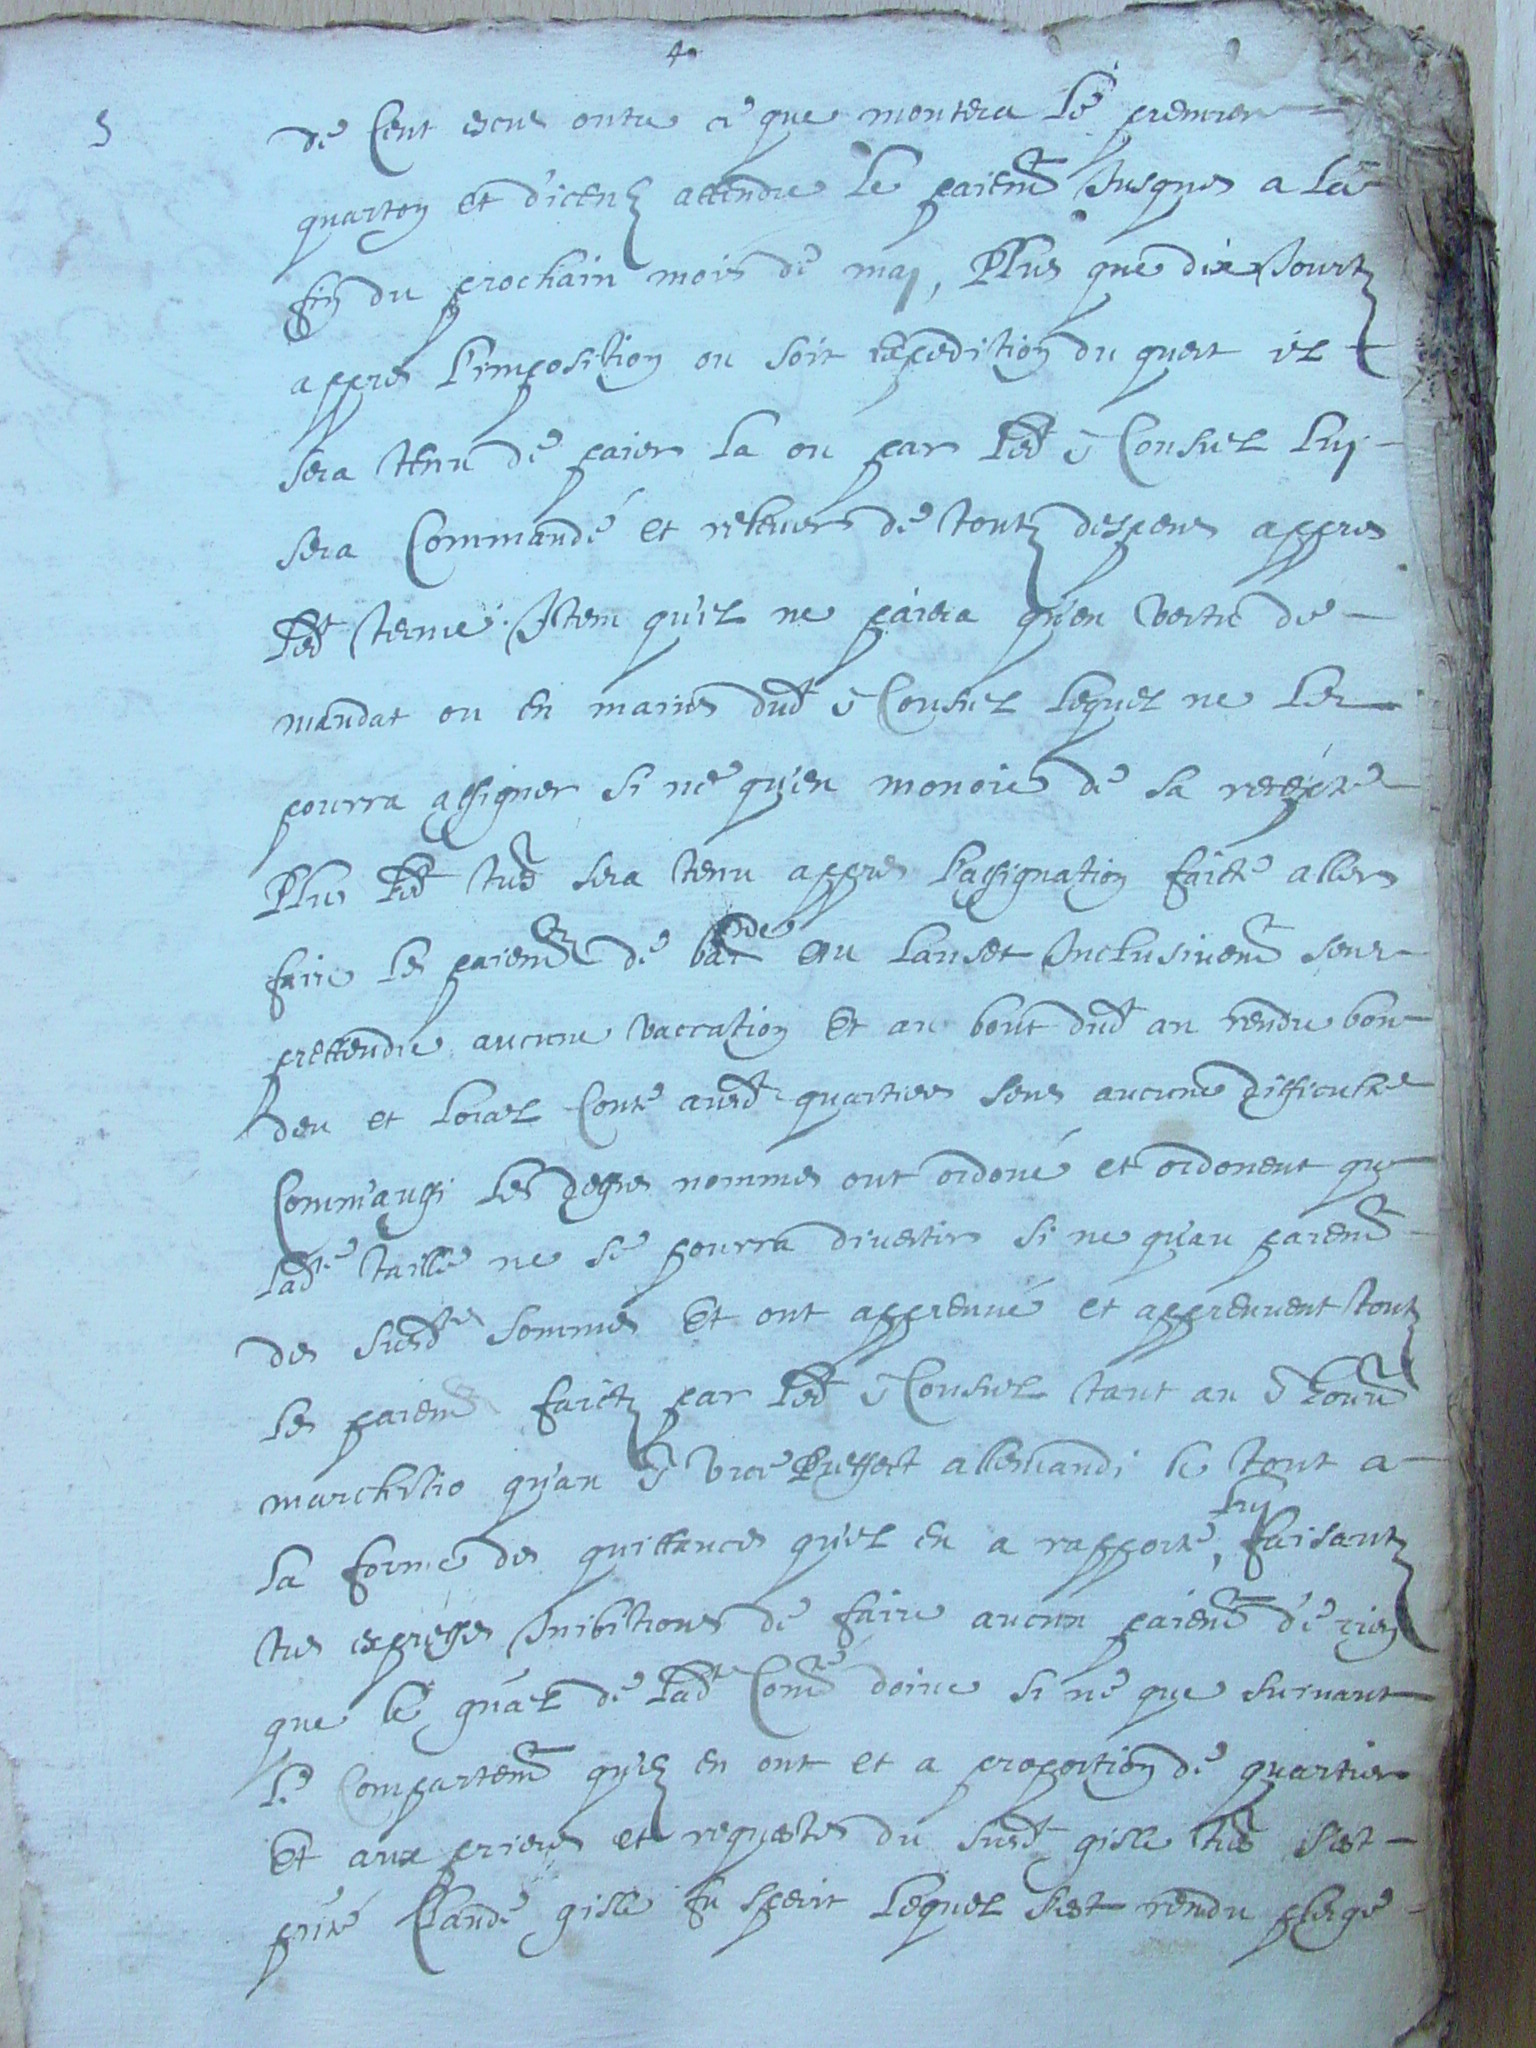 4
5
de Cent escus outre ce que montera le premier
quarton et d'iceux attendre le paiemt Jusques a la
fin du prochain mois de maj, Plus que dix Jourtz
appres l'imposition ou soit expedition du quert il
sera tenu de paier la ou par led sr Consuel luj
sera Commandé et relever de toutz despens appres
led terme. Item qu'il ne paiera qu'en vertu de
mandat ou en mains dud sr Consuel lequel ne les
pourra assigner si ne qu'en monoie de sa recepte
Plus led sera tenu appres l'assignation faicte aller
faire les paiemts de au lauset Inclusivemt sens
prettendre aucune vaccation Et au bout dud an rendre bon
deu et loial Conte ausd quartiers sens aucune difficulte
Comm'aussi les dessus nommes ont ordoné et ordonent que
lade taille ne se pourra divertir si ne qu'au paiemt
des susdtes sommes Et ont appreuvé et appreuvent tout
les paiemts faictz par led sr Consuel tant au sr
marchisio qu'au sr vice Preffect allemandi le tout a
la forme des quittances qu'il en a rapporté, luj faisant
tres expresses Inibitions de faire aucun paiemt de rien
que le gnál de lade Comte doive si ne que suivant
le Compartemt qu'ilz en ont et a proportion de quartier
Et aux prieres et requestes du susd gille s'est
pnté Claude gille fu speirit lequel s'est rendu plege